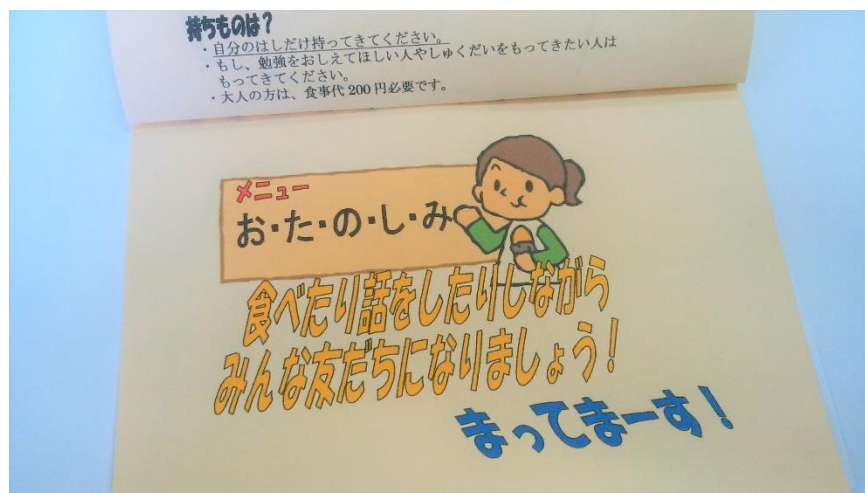 持ちものは？
・自分のはしだけ持ってきてください。
・もし、勉強をおしえてほしい人やしゅくだいをもってきたい人は
もってきてください。
・大人の方は、食事代200円必要です。
メニュー
お・た・の・し・み
食べたり話をしたりしながら
みんな友だちになりましょう！
まってまーす！